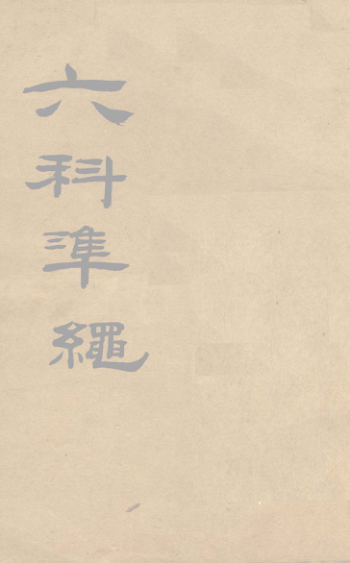 六科準繩